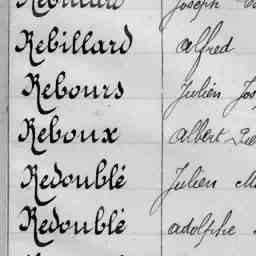 Joseph
Rebillard Alfred
Rebours Julien
Reboux Albert
Redoublé Julien
Redoublé Adolphe